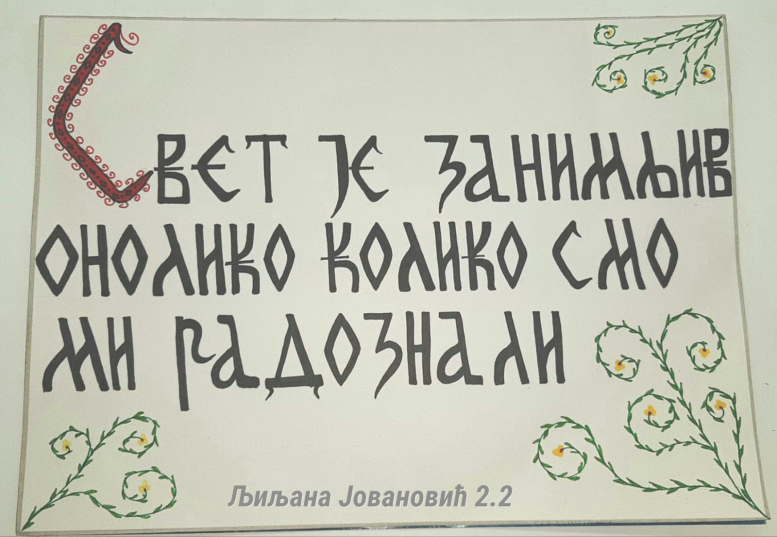 Свет је занимљив
онолико колико смо
ми радознали
Љиљана Јовановић 2.2